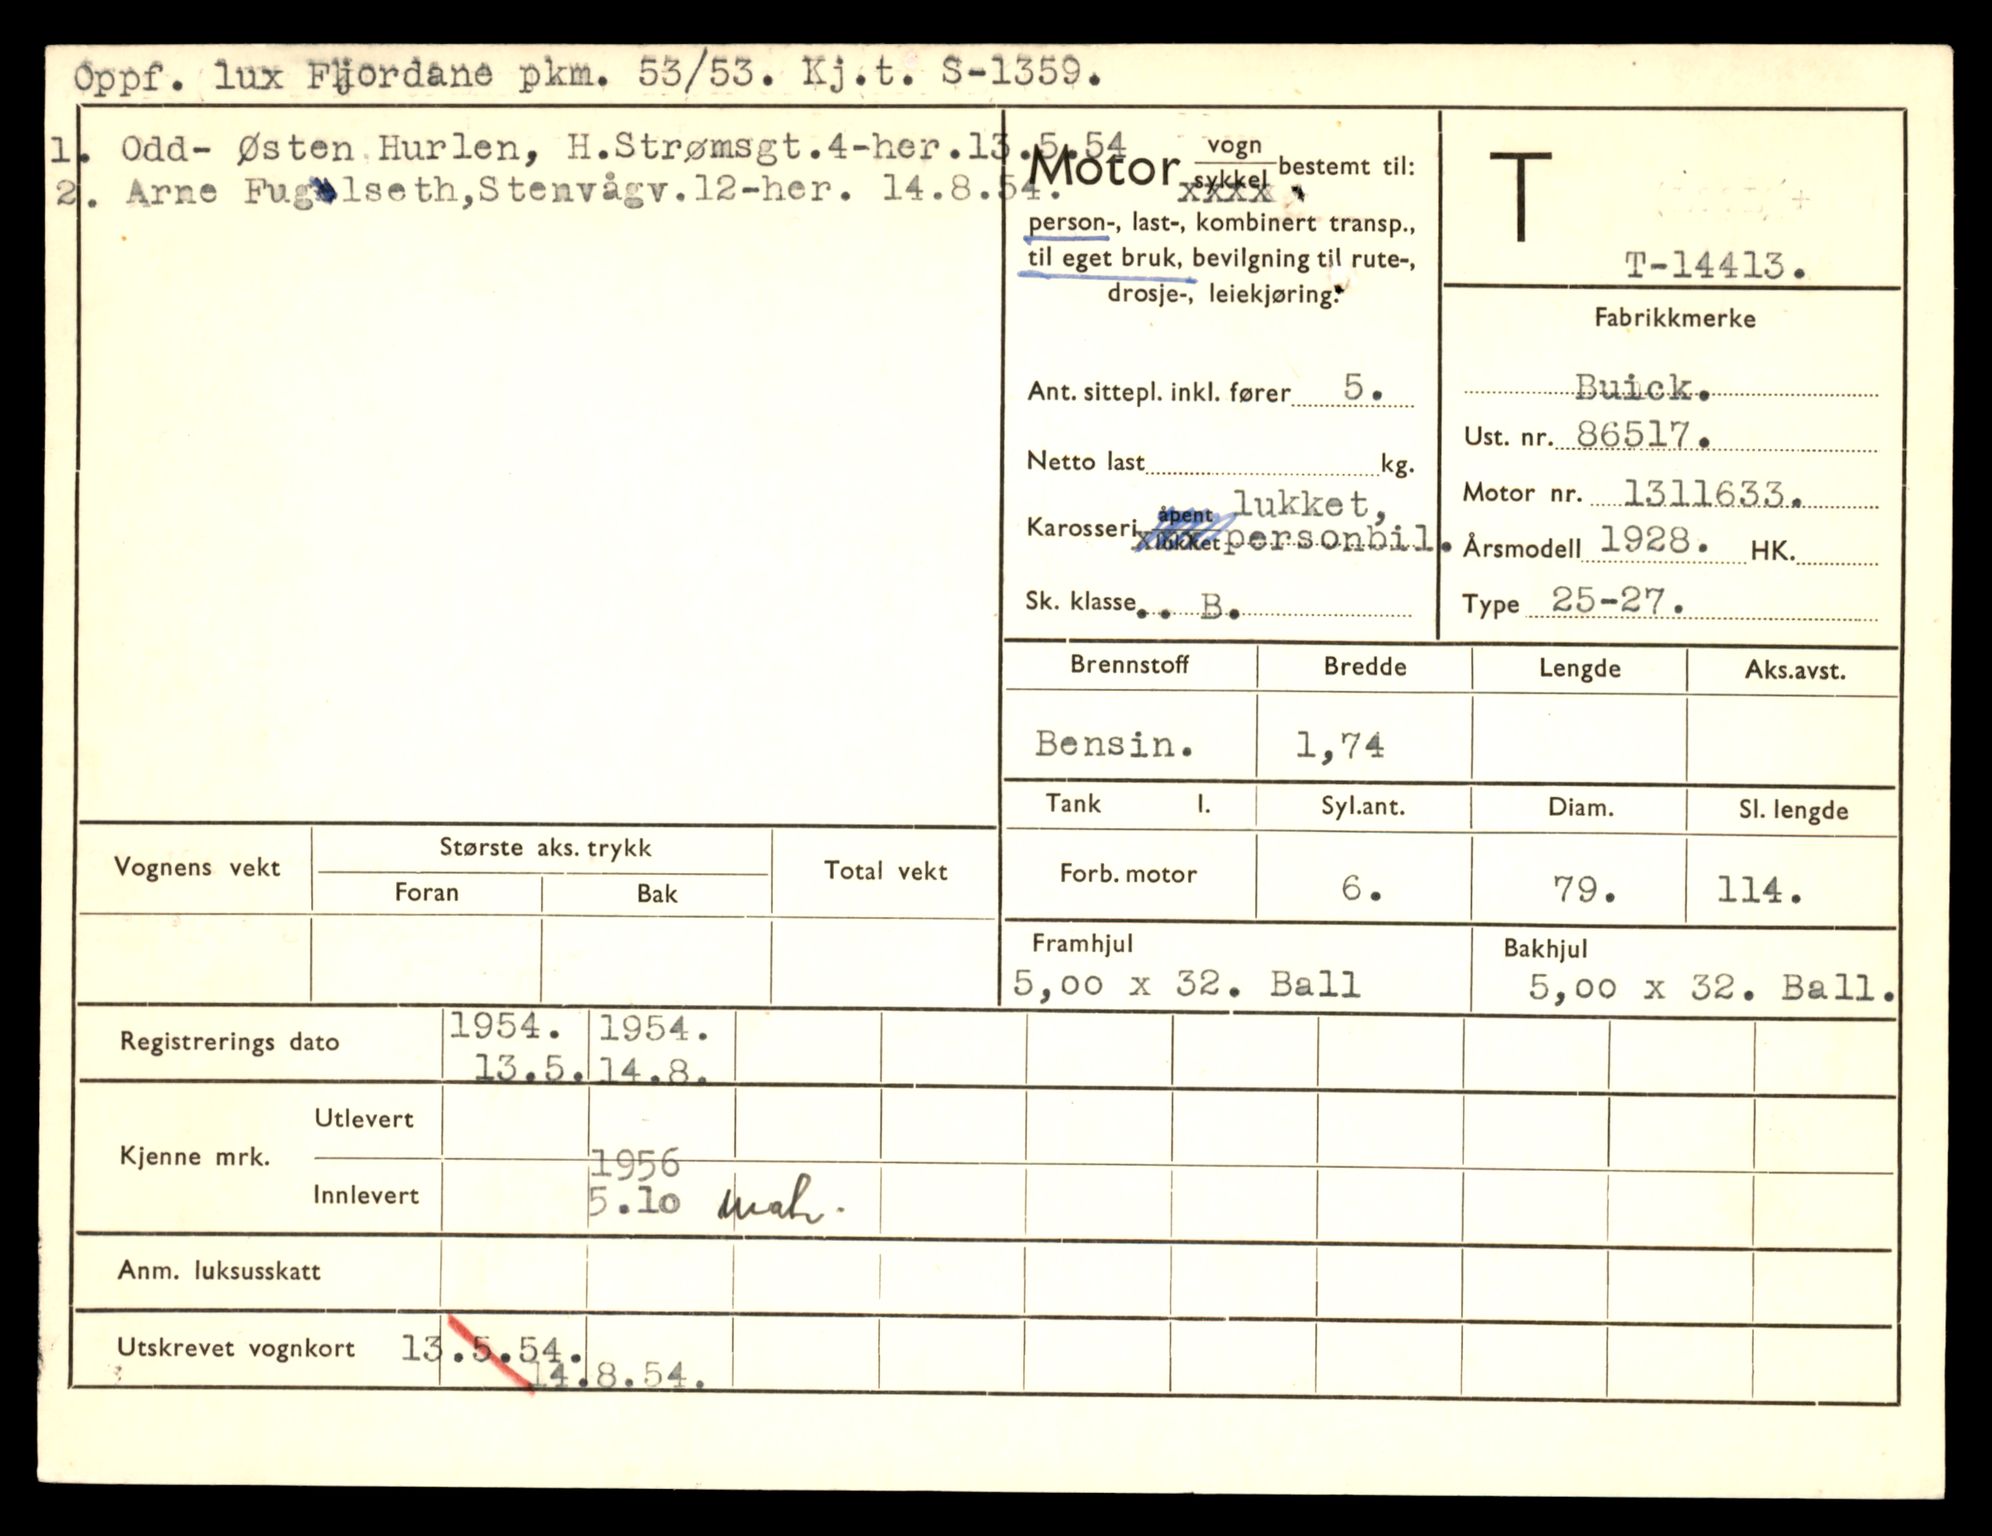 Oppf. lux Fjordane pkm. 53/53. Kj.t. S-1359.
1. Odd- Østen Hurlen, H.Strømsgt.4-her.13.5.54
2. Arne Fuglseth,Stenvågv.12-her. 14.8.54.
Motor vogn sykkel bestemt til:
xxxx
person-, last-, kombinert transp.,
til eget bruk, bevilgning til rute-,
drosje-, leiekjøring.
T
T-14413.
Ant. sittepl. inkl. fører 5.
Netto last kg.
Karosseri åpent lukket lukket,
xxx personbil.
Sk. klasse.. B.
Fabrikkmerke
Buick.
Ust. nr. 86517.
Motor nr. 1311633.
Årsmodell 1928. HK.
Type 25-27.
Brennstoff Bredde Lengde Aks.avst.
Bensin. 1,74
Tank l. Syl.ant. Diam. Sl. lengde
Forb. motor 6. 79. 114.
Framhjul Bakhjul
5,00 x 32. Ball 5,00 x 32. Ball.
Vognens vekt Største aks. trykk Total vekt
Foran Bak
Registrerings dato 1954. 1954.
13.5. 14.8.
Kjenne mrk. Utlevert
1956
Innlevert 5.10
Anm. luksusskatt
Utskrevet vognkort 13.5.54.
14.8.54.